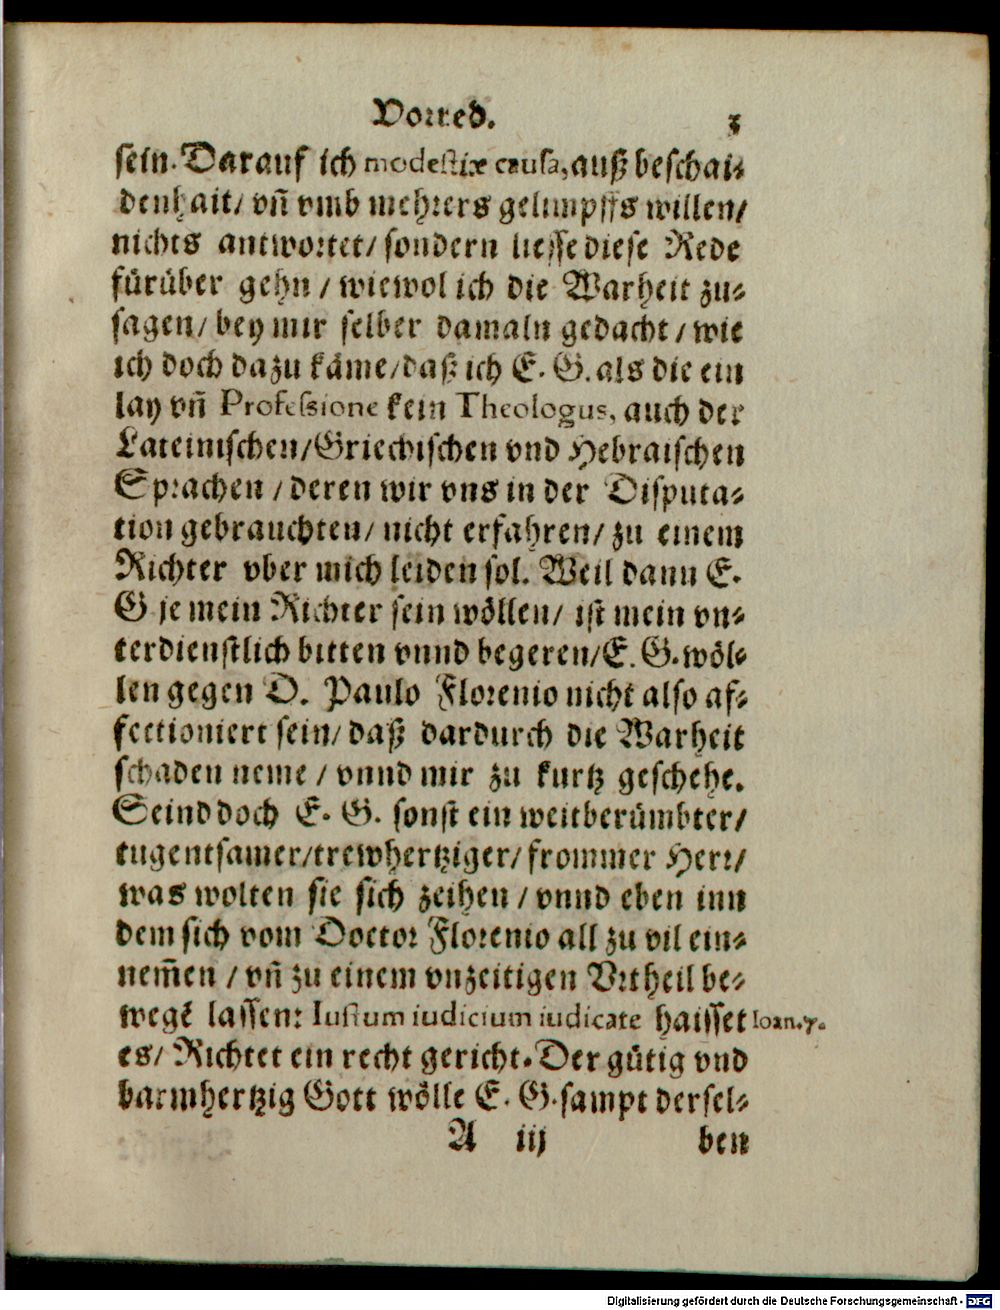 Vorred. 3
sein. Darauf ich modestiæ causa, auß beschai-
denhait/ vñ vmb mehrers gelimpffs willen/
nichts antwortet/ sondern liesse diese Rede
fürüber gehn / wiewol ich die Warheit zu-
sagen/ bey mir selber damaln gedacht / wie
ich doch dazu käme/ daß ich E. G. als die ein
lay vñ Professione kein Theologus, auch der
Lateinischen/ Griechischen vnd Hebraischen
Sprachen / deren wir vns in der Disputa-
tion gebrauchten/ nicht erfahren/ zu einem
Richter vber mich leiden sol. Weil dann E.
G je mein Richter sein wöllen/ ist mein vn-
terdienstlich bitten vnnd begeren/ E. G. wöl-
len gegen D. Paulo Florenio nicht also af-
fectioniert sein/ daß dardurch die Warheit
schaden neme / vnnd mir zu kurtz geschehe.
Seind doch E. G. sonst ein weitberümbter/
tugentsamer/ trewhertziger/ frommer Herr/
was wolten sie sich zeihen / vnnd eben inn
dem sich vom Doctor Florenio all zu vil ein-
nem̃en / vñ zu einem vnzeitigen Vrtheil be-
wegẽ lassen: Iustum iudicium iudicate haisset Ioan.7.
es/ Richtet ein recht gericht. Der gütig vnd
barmhertzig Gott wölle E. G. sampt dersel-
A iij ben
Digitalisierung gefördert durch die Deutsche Forschungsgemeinschaft - DFG